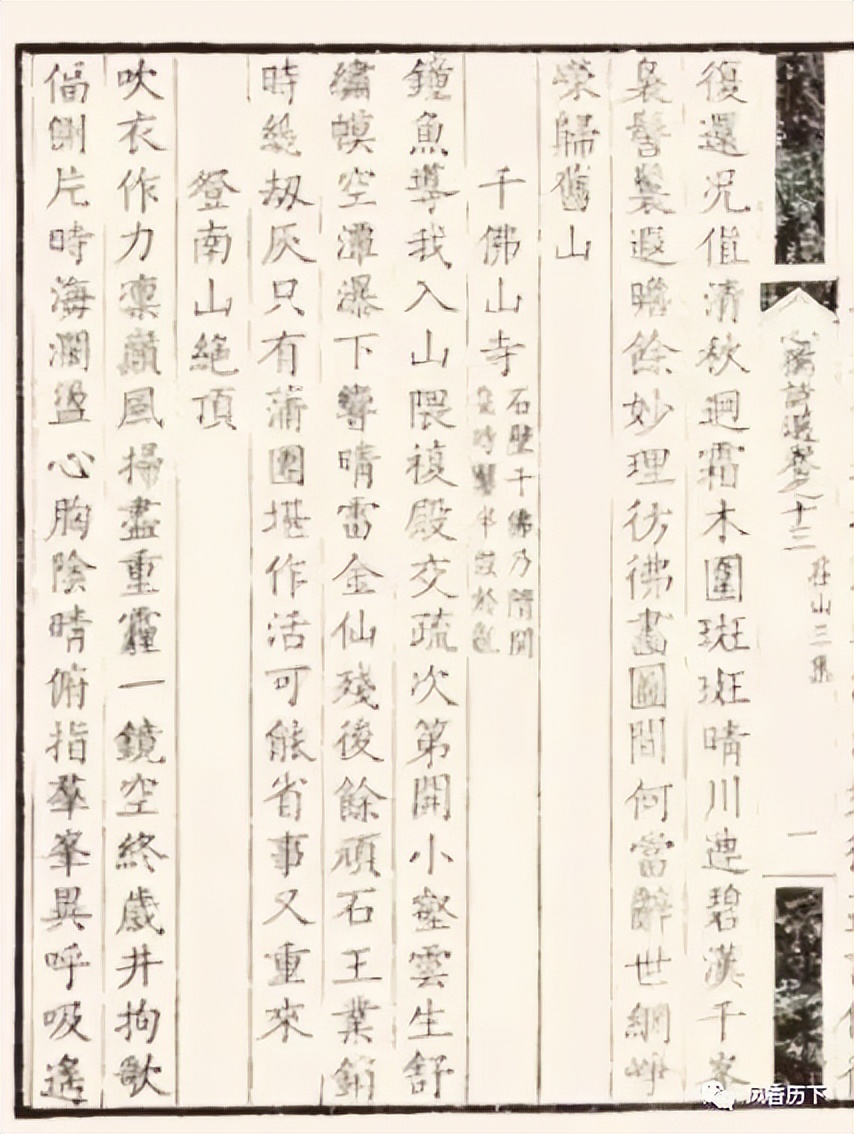 復還况値清秋迥霜木圍斑斑晴川遶碧漢千峯
裊髻鬟遐瞻餘妙理彷彿畫圖間何當辭世網
榮歸舊山
千佛山寺
石壁千佛乃隋開
鐘魚導我入山隈複殿交疏次第開小壑雲生舒
繡幙空潭瀑下奪晴雷金仙殘後餘頑石王業銷
時幾劫灰只有蒲團堪作活可能省事又重來
登南山絶頂
吹衣作力凜嚴風掃盡重霾一鏡空終歲井拘歌
偪側片時海濶盪心胸陰晴俯指羣峯異呼吸遙
卷之十三
三集
一
风香历下